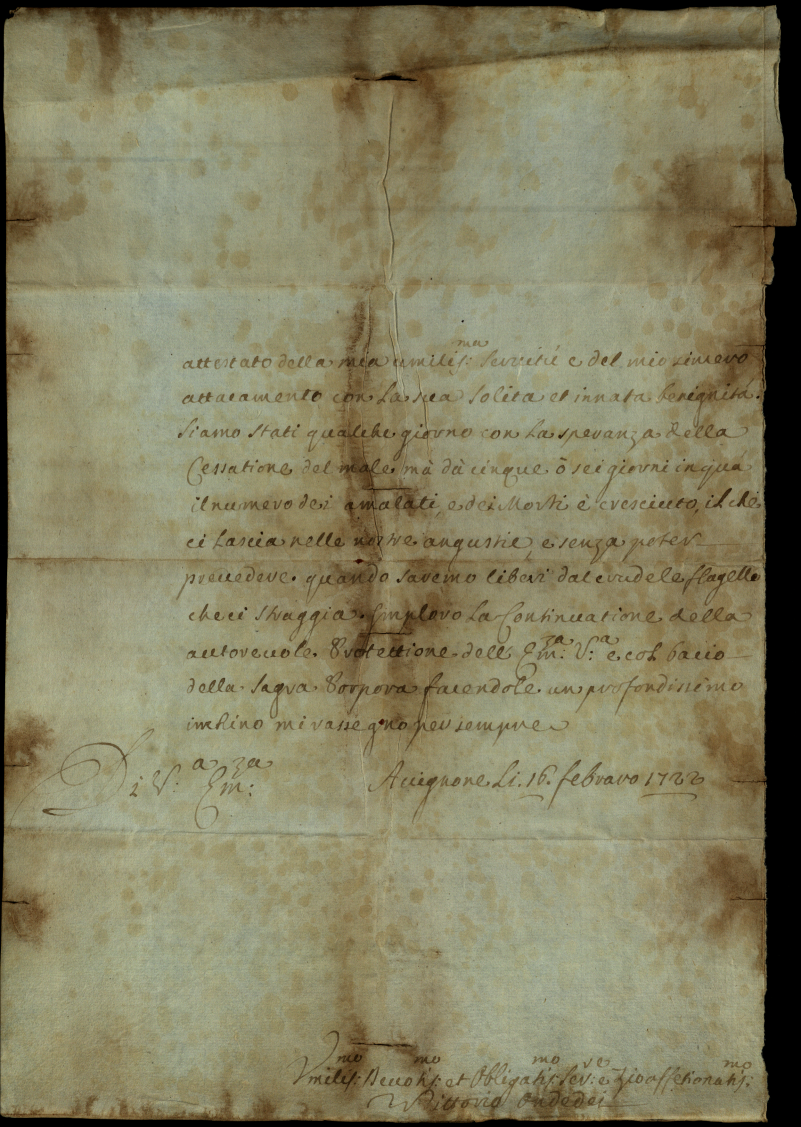 attestato della mia umilis:ma Servitù e del mio sincero
attacamento con La sua Solita et innata benignità.
Siamo stati qualche giorno con La speranza della
Cessatione del male, mà dà cinque ò sei giorni in quà
il numero dei amalati, e dei Morti è cresciuto, il che
ci Lascia nelle nostre angustie, e senza poter
prevedere quando saremo liberi dal crudele flagello
che ci straggia. Imploro La Continuatione della
autorevole Protettione dell' Em:za V:a e col bacio
della Sagra Porpora facendole un profondissimo
inchino mi rassegno per sempre
Di V:a Em:za Avignone Li. 16. febraro 1722
Vmilis:mo Devotis:mo et Obligatis:mo Ser:re e Zio affetionatis:mo
Vittorio Ondedei